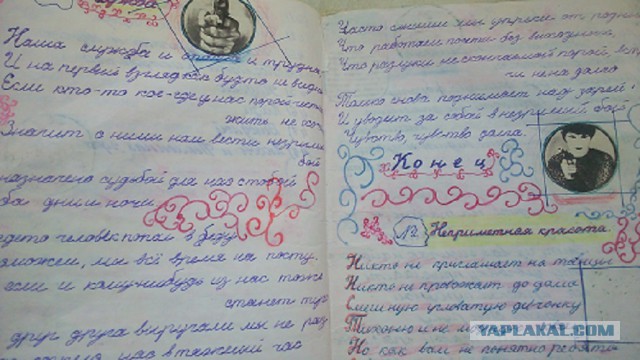 Наша служба и опасна и трудна,
И на первый взгляд как будто не видна
Если кто-то кое-где у нас порой
жить не хо-
Значит с ними нам вести незримый
бой
назначено судьбой для нас с тобой
ба дни и ночи.
где-то человек попал в беду
поможем, мы всё время на посту.
если и кому-нибудь из нас тоже
станет туго
друг друга выручали мы не раз
нас в тяжкий час
Часто слышим мы упрёки от родных
Что работаем почти без выходных,
Что разлуки нескончаемой порой,
чи не на долго
Только снова поднимает нас зарёй
И уводит за собой в незримый бой
Чувство, чувство долга.
Конец
№2 Неприметная красота
Никто не приглашает на танцы
Никто не провожает до дома
Смешную угловатую девчонку
Тихоню и не
Но как вам не понятно ребята
YAPLAKAL.COM